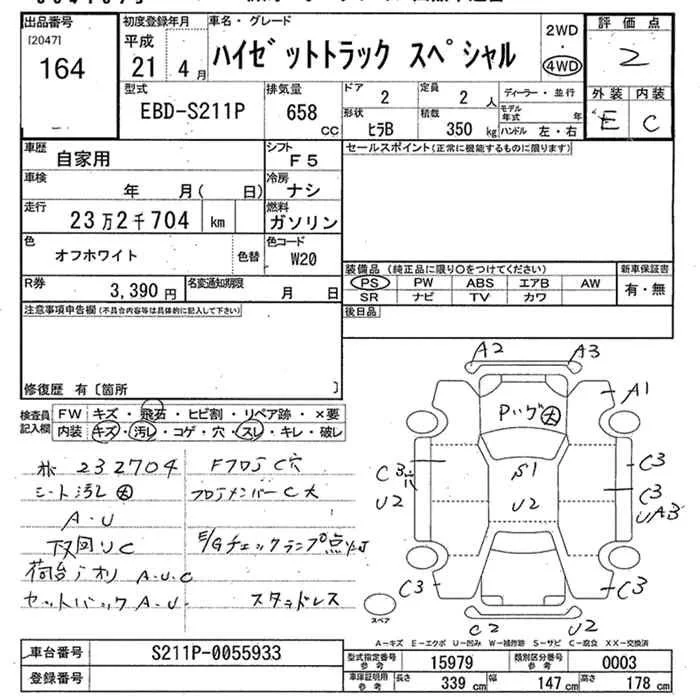 出品番号
[2047]
164
初度登録年月
平成
21年 4月
車名・グレード
ハイゼットトラック スペシャル
2WD
・
4WD
評価点
2
外装 内装
E C
型式
EBD-S211P
排気量
658 CC
ドア 2
定員 2人
ディーラー・並行
モデル年式 年
形状 ヒラB
積載 350 kg
ハンドル 左・右
車歴
自家用
シフト
F5
車検
年 月( 日)
冷房
ナシ
走行
23万2千704 km
燃料
ガソリン
色
オフホワイト
色替
色コード
W20
R券
3,390円
名変通知期限
月 日
セールスポイント(正常に機能するものに限ります)
装備品(純正品に限り○をつけてください)
新車保証書
PS PW ABS エアB AW
有・無
SR ナビ TV カワ
後日品
注意事項申告欄(不具合内容等は具体的に記入して下さい)
修復歴 有〔箇所 〕
検査員記入欄
FW キズ・飛石・ヒビ割・リペア跡・×要
内装 キズ・汚レ・コゲ・穴・スレ・キレ・破レ
232704
FフロアC穴
シート汚レ大
フロアメンバーC大
A・U
下回りC
E/Gチェックランプ点灯
荷台アオリ A・U・C
セットバック A・U
スタッドレス
A2 A3
A1
Pハゲ大
C3
U2
S1
U2
C3
C3
UA3
C3
C3
C2 U2
スペア
A-キズ E-エクボ U-凹み W-補修跡 S-サビ C-腐食 XX-交換済
車台番号
S211P-0055933
登録番号
型式指定番号 参考
15979
類別区分番号 参考
0003
車庫証明用 参考
長さ 339 cm
幅 147 cm
高さ 178 cm